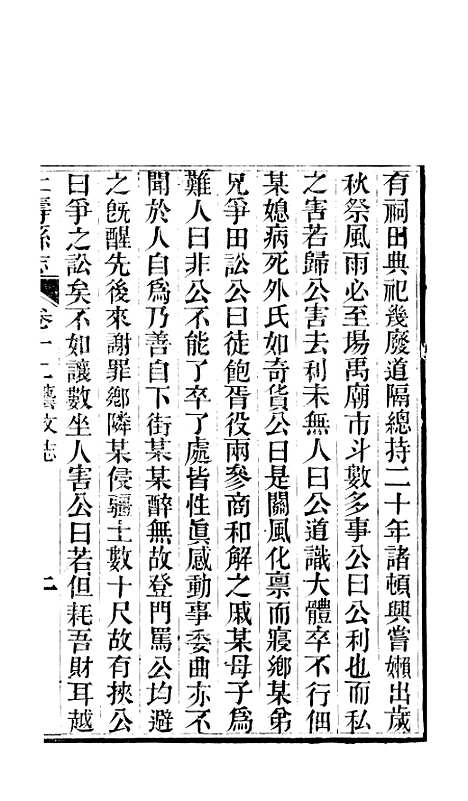 有祠田典祀幾廢道隔總持二十年諸頓興嘗嬾出歲
秋祭風雨必至場禹廟市斗數多事公曰公利也而私
之害若歸公害去利未無人曰公道識大體卒不行佃
某媳病死外氏如奇貨公曰是關風化稟而寢鄉某弟
兄爭田訟公曰徒飽胥役兩參商和解之戚某母子為
難人曰非公不能了卒了處皆性眞感動事委曲亦不
聞於人自為乃善自下街某某醉無故登門罵公均避
之旣醒先後來謝罪鄉隣某侵疆土數十尺故有挾公
曰爭之訟矣不如讓數坐人害公曰若但耗吾財耳越
仁壽縣志 卷十二藝文志 二